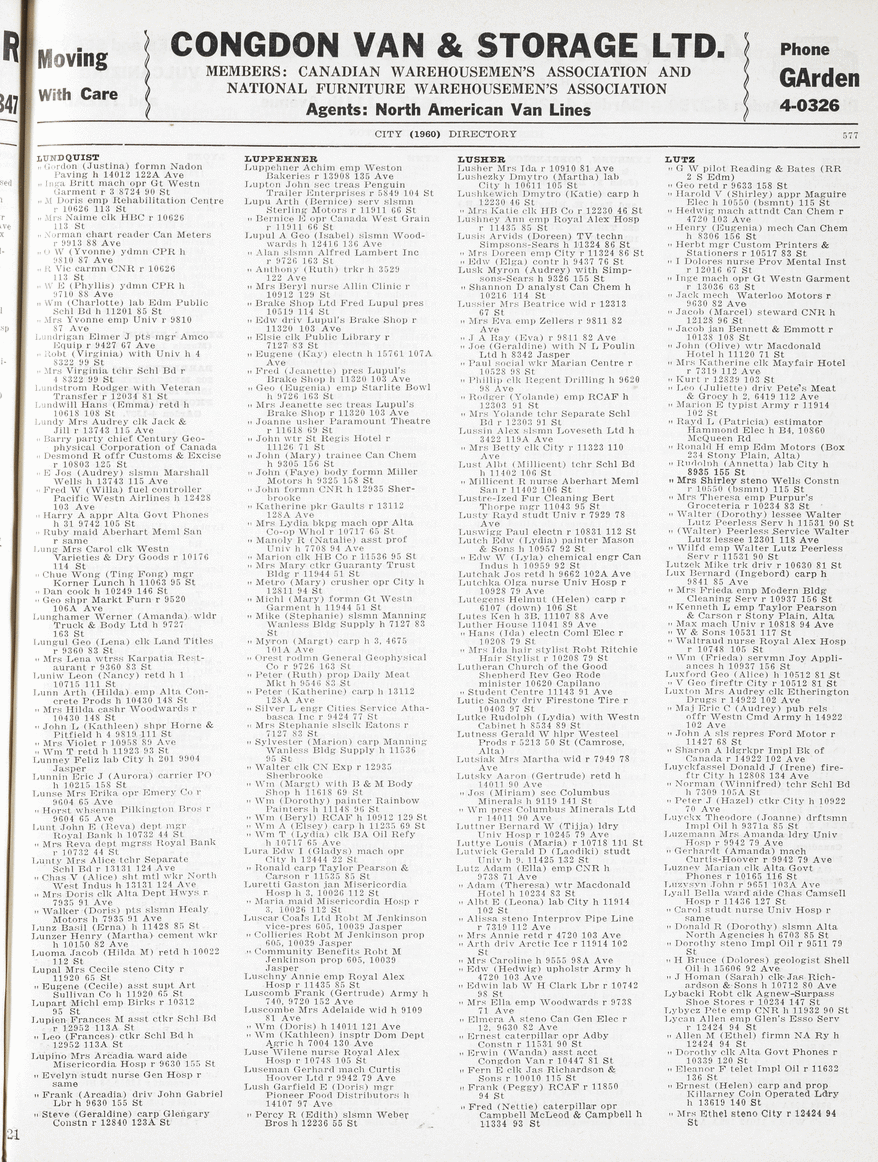 Moving
With Care
CONGDON VAN & STORAGE LTD.
MEMBERS: CANADIAN WAREHOUSEMEN'S ASSOCIATION AND
NATIONAL FURNITURE WAREHOUSEMEN'S ASSOCIATION
Agents: North American Van Lines
Phone
GArden
4-0326
CITY (1960) DIRECTORY
577
LUNDQUIST
" Gordon (Justina) formn Nadon
Paving h 14012 122A Ave
" Inga Britt mach opr Gt Westn
Garment r 3 8724 90 St
" M Doris emp Rehabilitation Centre
r 10626 113 St
" Mrs Naime clk HBC r 10626
113 St
" Norman chart reader Can Meters
r 9913 88 Ave
" O W (Yvonne) ydmn CPR h
9810 87 Ave
" R Vic carmn CNR r 10626
113 St
" W E (Phyllis) ydmn CPR h
9710 88 Ave
" Wm (Charlotte) lab Edm Public
Schl Bd h 11201 85 St
" Mrs Yvonne emp Univ r 9810
87 Ave
Lundrigan Elmer J pts mgr Amco
Equip r 9427 67 Ave
" Robt (Virginia) with Univ h 4
8322 99 St
" Mrs Virginia tchr Schl Bd r
4 8322 99 St
Lundstrom Rodger with Veteran
Transfer r 12034 81 St
Landwill Hans (Emma) retd h
10618 108 St
Lundy Mrs Audrey clk Jack &
Jill r 13743 115 Ave
" Barry party chief Century Geo-
physical Corporation of Canada
" Desmond R offr Customs & Excise
r 10803 125 St
" E Jos (Audrey) slsmn Marshall
Wells h 13743 115 Ave
" Fred W (Willa) fuel controller
Pacific Westn Airlines h 12428
103 Ave
" Harry A appr Alta Govt Phones
h 31 9742 105 St
" Ruby maid Aberhart Meml San
r same
Lung Mrs Carol clk Westn
Varieties & Dry Goods r 10176
114 St
" Chue Wong (Ting Fong) mgr
Korner Lunch h 11063 95 St
" Dan cook h 10249 146 St
" Geo shpr Markt Furn r 9520
106A Ave
Lunghamer Werner (Amanda) wldr
Truck & Body Ltd h 9727
163 St
Lungul Geo (Lena) clk Land Titles
r 9360 83 St
" Mrs Lena wtrss Karpatia Rest-
aurant r 9360 83 St
Luniw Leon (Nancy) retd h 1
10715 111 St
Lunn Arth (Hilda) emp Alta Con-
crete Prods h 10430 148 St
" Mrs Hilda cashr Woodwards r
10430 148 St
" John L (Kathleen) shpr Horne &
Pitfield h 4 9819 111 St
" Mrs Violet r 10958 89 Ave
" Wm T retd h 11923 93 St
Lunney Feliz lab City h 201 9904
Jasper
Lunnin Eric J (Aurora) carrier PO
h 10215 158 St
Lunse Mrs Erika opr Emery Co r
9604 65 Ave
" Horst whsemn Pilkington Bros r
9604 65 Ave
Lunt John E (Reva) dept mgr
Royal Bank h 10732 44 St
" Mrs Reva dept mgrss Royal Bank
r 10732 44 St
Lunty Mrs Alice tchr Separate
Schl Bd r 13131 124 Ave
" Chas V (Alice) sht mtl wkr North
West Indus h 13131 124 Ave
" Mrs Doris clk Alta Dept Hwys r
7935 91 Ave
" Walker (Doris) pts slsmn Healy
Motors h 7935 91 Ave
Lunz Basil (Erna) h 11428 85 St
Lunzer Henry (Martha) cement wkr
h 10150 82 Ave
Luoma Jacob (Hilda M) retd h 10022
112 St
Lupal Mrs Cecile steno City r
11920 65 St
" Eugene (Cecile) asst supt Art
Sullivan Co h 11920 65 St
Lupart Michl emp Birks r 10312
95 St
Lupien Frances M asst ctkr Schl Bd
r 12952 113A St
" Leo (Frances) ctkr Schl Bd h
12952 113A St
Lupino Mrs Arcadia ward aide
Misericordia Hosp r 9630 155 St
" Evelyn studt nurse Gen Hosp r
same
" Frank (Arcadia) driv John Gabriel
Lbr h 9630 155 St
" Steve (Geraldine) carp Glengary
Constn r 12840 123A St
LUPPEHNER
Luppehner Achim emp Weston
Bakeries r 13908 135 Ave
Lupton John sec treas Penguin
Trailer Enterprises r 5849 104 St
Lupu Arth (Bernice) serv slsmn
Sterling Motors r 11911 66 St
" Bernice E opr Canada West Grain
r 11911 66 St
Lupul A Geo (Isabel) slsmn Wood-
wards h 12416 136 Ave
" Alan slsmn Alfred Lambert Inc
r 9726 163 St
" Anthony (Ruth) trkr h 3529
122 Ave
" Mrs Beryl nurse Allin Clinic r
10912 129 St
" Brake Shop Ltd Fred Lupul pres
10519 114 St
" Edw driv Lupul's Brake Shop r
11320 103 Ave
" Elsie clk Public Library r
7127 83 St
" Eugene (Kay) electn h 15761 107A
Ave
" Fred (Jeanette) pres Lupul's
Brake Shop h 11320 103 Ave
" Geo (Eugenia) emp Starlite Bowl
h 9726 163 St
" Mrs Jeanette sec treas Lupul's
Brake Shop r 11320 103 Ave
" Joanne usher Paramount Theatre
r 11618 69 St
" John wtr St Regis Hotel r
11126 71 St
" John (Mary) trainee Can Chem
h 9305 156 St
" John (Faye) body formn Miller
Motors h 9325 158 St
" John formn CNR h 12935 Sher-
brooke
" Katherine pkr Gaults r 13112
128A Ave
" Mrs Lydia bkpg mach opr Alta
Co-op Whol r 10717 65 St
" Manoly R (Natalie) asst prof
Univ h 7708 94 Ave
" Marion clk HB Co r 11536 95 St
" Mrs Mary ctkr Guaranty Trust
Bldg r 11944 51 St
" Metro (Mary) crusher opr City h
12811 94 St
" Michl (Mary) formn Gt Westn
Garment h 11944 51 St
" Mike (Stephanie) slsmn Manning
Wanless Bldg Supply h 7127 83
St
" Myron (Margt) carp h 3, 4675
101A Ave
" Orest rodmn General Geophysical
Co r 9726 163 St
" Peter (Ruth) prop Daily Meat
Mkt h 9546 83 St
" Peter (Katherine) carp h 13112
128A Ave
" Silver L engr Cities Service Atha-
basca Inc r 9424 77 St
" Mrs Stephanie slsclk Eatons r
7127 83 St
" Sylvester (Marion) carp Manning
Wanless Bldg Supply h 11536
95 St
" Walter clk CN Exp r 12935
Sherbrooke
" Wm (Margt) with B & M Body
Shop h 11618 69 St
" Wm (Dorothy) painter Rainbow
Painters h 11148 96 St
" Wm (Beryl) RCAF h 10912 129 St
" Wm A (Elsey) carp h 11235 69 St
" Wm T (Lydia) clk BA Oil Refy
h 10717 65 Ave
Lura Edw I (Gladys) mach opr
City h 12444 22 St
" Ronald carp Taylor Pearson &
Carson r 11535 85 St
Luretti Gaston jan Misericordia
Hosp h 3, 10026 112 St
" Maria maid Misericordia Hosp r
3, 10026 112 St
Luscar Coals Ltd Robt M Jenkinson
vice-pres 605, 10039 Jasper
" Collieries Robt M Jenkinson prop
605, 10039 Jasper
" Community Benefits Robt M
Jenkinson prop 605, 10039
Jasper
Luschny Annie emp Royal Alex
Hosp r 11435 85 St
Luscomb Frank (Gertrude) Army h
740, 9720 152 Ave
Luscombe Mrs Adelaide wid h 9109
81 Ave
" Wm (Doris) h 14011 121 Ave
" Wm (Kathleen) insptr Dom Dept
Agric h 7004 130 Ave
Luse Wilene nurse Royal Alex
Hosp r 10748 105 St
Luseman Gerhard mach Curtis
Hoover Ltd r 9942 79 Ave
Lush Garfield E (Doris) mgr
Pioneer Food Distributors h
14107 97 Ave
" Percy R (Edith) slsmn Weber
Bros h 12236 55 St
LUSHER
Lusher Mrs Ida r 10910 81 Ave
Lushezky Dmytro (Martha) lab
City h 10611 105 St
Lushkewich Dmytro (Katie) carp h
12230 46 St
" Mrs Katie clk HB Co r 12230 46 St
Lushney Ann emp Royal Alex Hosp
r 11435 85 St
Lusis Arvids (Doreen) TV techn
Simpsons-Sears h 11324 86 St
" Mrs Doreen emp City r 11324 86 St
" Edw (Elga) contr h 9437 76 St
Lusk Myron (Audrey) with Simp-
sons-Sears h 9326 155 St
" Shannon D analyst Can Chem h
10216 114 St
Lussier Mrs Beatrice wid r 12313
67 St
" Mrs Eva emp Zellers r 9811 82
Ave
" J A Ray (Eva) r 9811 82 Ave
" Joe (Geraldine) with N L Poulin
Ltd h 8342 Jasper
" Paul social wkr Marian Centre r
10528 98 St
" Phillip clk Regent Drilling h 9620
98 Ave
" Rodger (Yolande) emp RCAF h
12303 91 St
" Mrs Yolande tchr Separate Schl
Bd r 12303 91 St
Lussin Alex slsmn Loveseth Ltd h
3422 119A Ave
" Mrs Betty clk City r 11323 110
Ave
Lust Albt (Millicent) tchr Schl Bd
h 11402 106 St
" Millicent R nurse Aberhart Meml
San r 11402 106 St
Lustre-Ized Fur Cleaning Bert
Thorpe mgr 11043 95 St
Lusty Rayd studt Univ r 7929 78
Ave
Luswigg Paul electn r 10831 112 St
Lutch Edw (Lydia) painter Mason
& Sons h 10957 92 St
" Edw W (Lyla) chemical engr Can
Indus h 10959 92 St
Lutchak Jos retd h 9662 102A Ave
Lutchka Olga nurse Univ Hosp r
10928 79 Ave
Lutegens Helmut (Helen) carp r
6107 (down) 106 St
Lutes Ken h 3B, 11107 88 Ave
Luther House 11041 89 Ave
" Hans (Ida) electn Coml Elec r
10208 79 St
" Mrs Ida hair stylist Robt Ritchie
Hair Stylist r 10208 79 St
Lutheran Church of the Good
Shepherd Rev Geo Rode
minister 10620 Capilano
" Student Centre 11143 91 Ave
Lutie Sandy driv Firestone Tire r
10403 97 St
Lutke Rudolph (Lydia) with Westn
Cabinet h 8534 89 St
Lutness Gerald W hlpr Westeel
Prods r 5213 50 St (Camrose,
Alta)
Lutsiak Mrs Martha wid r 7949 78
Ave
Lutsky Aaron (Gertrude) retd h
14011 90 Ave
" Jos (Miriam) sec Columbus
Minerals h 9119 141 St
" Wm pres Columbus Minerals Ltd
r 14011 90 Ave
Luttner Bernard W (Tijja) ldry
Univ Hosp r 10245 79 Ave
Luttye Louis (Maria) r 10718 114 St
Lutwick Gerald D (Laodiki) studt
Univ h 9, 11425 132 St
Lutz Adam (Ella) emp CNR h
9738 71 Ave
" Adam (Theresa) wtr Macdonald
Hotel h 10234 83 St
" Albt E (Leona) lab City h 11914
102 St
" Alissa steno Interprov Pipe Line
r 7319 112 Ave
" Mrs Annie retd r 4720 103 Ave
" Arth driv Arctic Ice r 11914 102
St
" Mrs Caroline h 9555 98A Ave
" Edw (Hedwig) upholstr Army h
4720 103 Ave
" Edwin lab W H Clark Lbr r 10742
98 St
" Mrs Ella emp Woodwards r 9738
71 Ave
" Elmera A steno Can Gen Elec r
12, 9630 82 Ave
" Ernest caterpillar opr Adby
Constn r 11531 90 St
" Erwin (Wanda) asst acct
Congdon Van r 10447 81 St
" Fern E clk Jas Richardson &
Sons r 10010 115 St
" Frank (Peggy) RCAF r 11850
94 St
" Fred (Nettie) caterpillar opr
Campbell McLeod & Campbell h
11334 93 St
LUTZ
" G W pilot Reading & Bates (RR
2 S Edm)
" Geo retd r 9633 158 St
" Harold V (Shirley) appr Maguire
Elec h 10550 (bsmnt) 115 St
" Hedwig mach attndt Can Chem r
4720 103 Ave
" Henry (Eugenia) mech Can Chem
h 8306 156 St
" Herbt mgr Custom Printers &
Stationers r 10517 83 St
" I Dolores nurse Prov Mental Inst
r 12016 67 St
" Inge mach opr Gt Westn Garment
r 13036 63 St
" Jack mech Waterloo Motors r
9630 82 Ave
" Jacob (Marcel) steward CNR h
12128 96 St
" Jacob jan Bennett & Emmott r
10138 108 St
" John (Olive) wtr Macdonald
Hotel h 11120 71 St
" Mrs Katherine clk Mayfair Hotel
r 7319 112 Ave
" Kurt r 12839 103 St
" Leo (Juliette) driv Pete's Meat
& Grocy h 2, 6419 112 Ave
" Marion E typist Army r 11914
102 St
" Rayd L (Patricia) estimator
Hammond Elec h B4, 10860
McQueen Rd
" Ronald H emp Edm Motors (Box
234 Stony Plain, Alta)
" Rudolph (Annetta) lab City h
8935 155 St
" Mrs Shirley steno Wells Constn
r 10550 (bsmnt) 115 St
" Mrs Theresa emp Purpur's
Groceteria r 10234 83 St
" Walter (Dorothy) lessee Walter
Lutz Peerless Serv h 11531 90 St
" (Walter) Peerless Service Walter
Lutz lessee 12301 118 Ave
" Wilfd emp Walter Lutz Peerless
Serv r 11531 90 St
Lutzek Mike trk driv r 10630 81 St
Lux Bernard (Ingebord) carp h
9841 85 Ave
" Mrs Frieda emp Modern Bldg
Cleaning Serv r 10937 156 St
" Kenneth L emp Taylor Pearson
& Carson r Stony Plain, Alta
" Max mach Univ r 10818 94 Ave
" W & Sons 10531 117 St
" Waltraud nurse Royal Alex Hosp
r 10748 105 St
" Wm (Frieda) servmn Joy Appli-
ances h 10937 156 St
Luxford Geo (Alice) h 10512 81 St
" V Geo fireftr City r 10512 81 St
Luxton Mrs Audrey clk Etherington
Drugs r 14922 102 Ave
" Maj Eric C (Audrey) pub rels
offr Westn Cmd Army h 14922
102 Ave
" John A sls repres Ford Motor r
11427 68 St
" Sharon A ldgrkpr Impl Bk of
Canada r 14922 102 Ave
Luyckfassel Donald J (Irene) fire-
ftr City h 12808 134 Ave
" Norman (Winnifred) tchr Schl Bd
h 7309 105A St
" Peter J (Hazel) ctkr City h 10922
70 Ave
Luyckx Theodore (Joanne) drftsmn
Impl Oil h 9371a 85 St
Luzemann Mrs Amanda ldry Univ
Hosp r 9942 79 Ave
" Gerhardt (Amanda) mach
Curtis-Hoover r 9942 79 Ave
Luzney Marian clk Alta Govt
Phones r 10165 116 St
Luzysyn John r 9651 103A Ave
Lyall Bella ward aide Chas Camsell
Hosp r 11436 127 St
" Carol studt nurse Univ Hosp r
same
" Donald R (Dorothy) slsmn Alta
North Agencies h 6703 85 St
" Dorothy steno Impl Oil r 9511 79
St
" H Bruce (Dolores) geologist Shell
Oil h 15606 92 Ave
" J Homan (Sarah) clk Jas Rich-
ardson & Sons h 10712 80 Ave
Lybacki Robt clk Agnew-Surpass
Shoe Stores r 10234 147 St
Lybycz Pete emp CNR h 11932 90 St
Lycan Allen emp Glen's Esso Serv
r 12424 94 St
" Allen M (Ethel) firmn NA Ry h
12424 94 St
" Dorothy clk Alta Govt Phones r
10339 120 St
" Eleanor F telet Impl Oil r 11632
136 St
" Ernest (Helen) carp and prop
Killarney Coin Operated Ldry
h 13619 140 St
" Mrs Ethel steno City r 12424 94
St